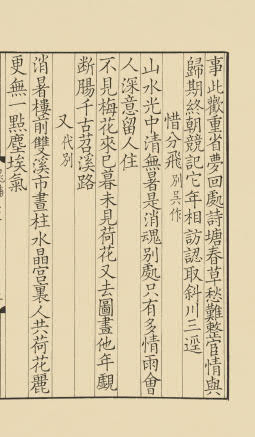 事此歡重省夢回處詩塘春草愁難整宦情與
歸期終朝競記它年相訪認取斜川三逕
惜分飛 別吳作
山水光中清無暑是消魂別處只有多情雨會
人深意留人住
不見梅花來已暮未見荷花又去圖畫他年覷
断腸千古苕溪路
又 代別
消暑樓前雙溪市畫柱水晶宮裏人共荷花麗
更無一點塵埃氣